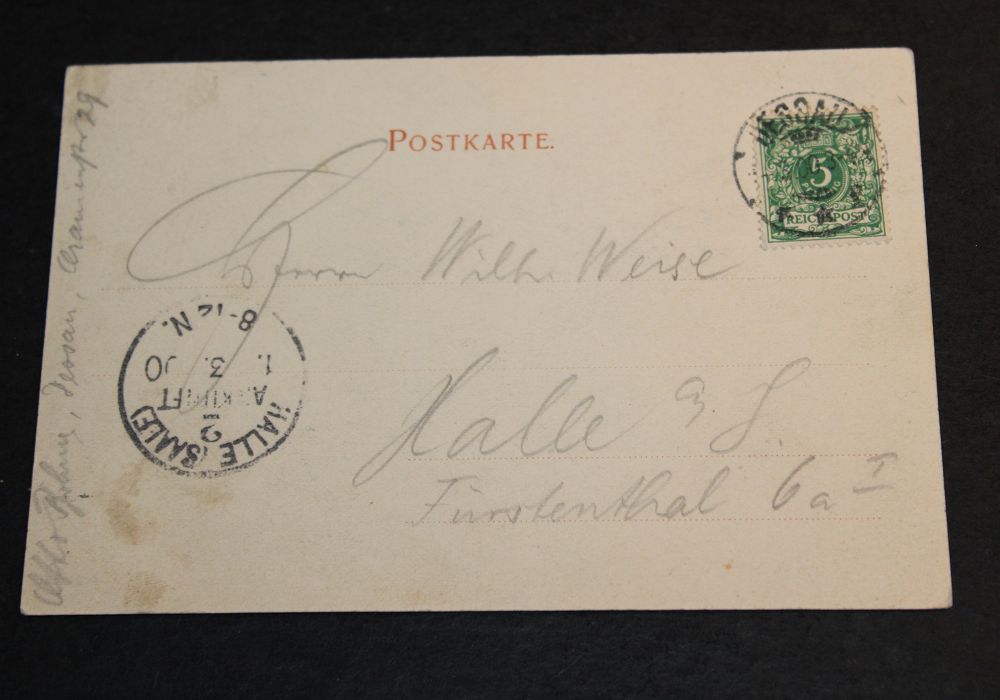 POSTKARTE.
DESSAU
5
PFENNIG
REICHSPOST
Herrn Wilh. Weise
Halle a S.
Fürstenthal 6a I
HALLE (SAALE)
2
ANKUNFT
1. 3. 00
8-12 N.
Dessau, 29